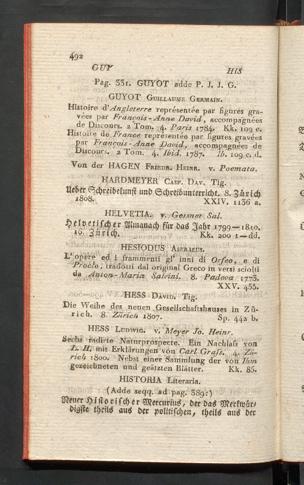 492
GUY HIS
Pag. 331. GUYOT adde P. J. J. G.
GUYOT Guillaume Germain.
Histoire d'Angleterre représentée par figures gra-
vées par François-Anne David, accompagnées
de Discours. 2 Tom. 4. Paris 1784. Kk. 109 c.
Histoire de France représentée par figures gravées
par François-Anne David, accompagnées de
Discours. 2 Tom. 4. Ibid. 1787. Ib. 109 c. d.
Von der HAGEN Friedr. Heinr. v. Poemata.
HARDMEYER Casp. Dav. Tig.
Ueber Schreibekunst und Schreibunterricht. 8. Zürich
1808. XXIV. 1156 a.
HELVETIA. v. Gesner Sal.
Helvetischer Almanach für das Jahr 1799—1810.
16. Zürich. Kk. 200 1—dd.
HESIODUS Ascraeus.
L'opere ed i frammenti gl' inni di Orfeo, e di
Proclo, tradotti dal original Greco in versi sciolti
da Anton-Maria Salvini. 8. Padova 1773.
XXV. 455.
HESS David. Tig.
Die Weihe des neuen Gesellschaftshauses in Zü-
rich. 8. Zürich 1807. Sp. 442 b.
HESS Ludwig. v. Meyer Jo. Heinr.
Sechs radirte Naturprospecte. Ein Nachlass von
L. H. mit Erklärungen von Carl Grass. 4. Zü-
rich 1800. Nebst einer Sammlung der von Ihm
gezeichneten und geätzten Blätter. Kk. 85.
HISTORIA Literaria.
(Adde seqq. ad pag. 389:)
Neuer Historischer Mercurius, der das Merkwür-
digste theils aus der politischen, theils aus der